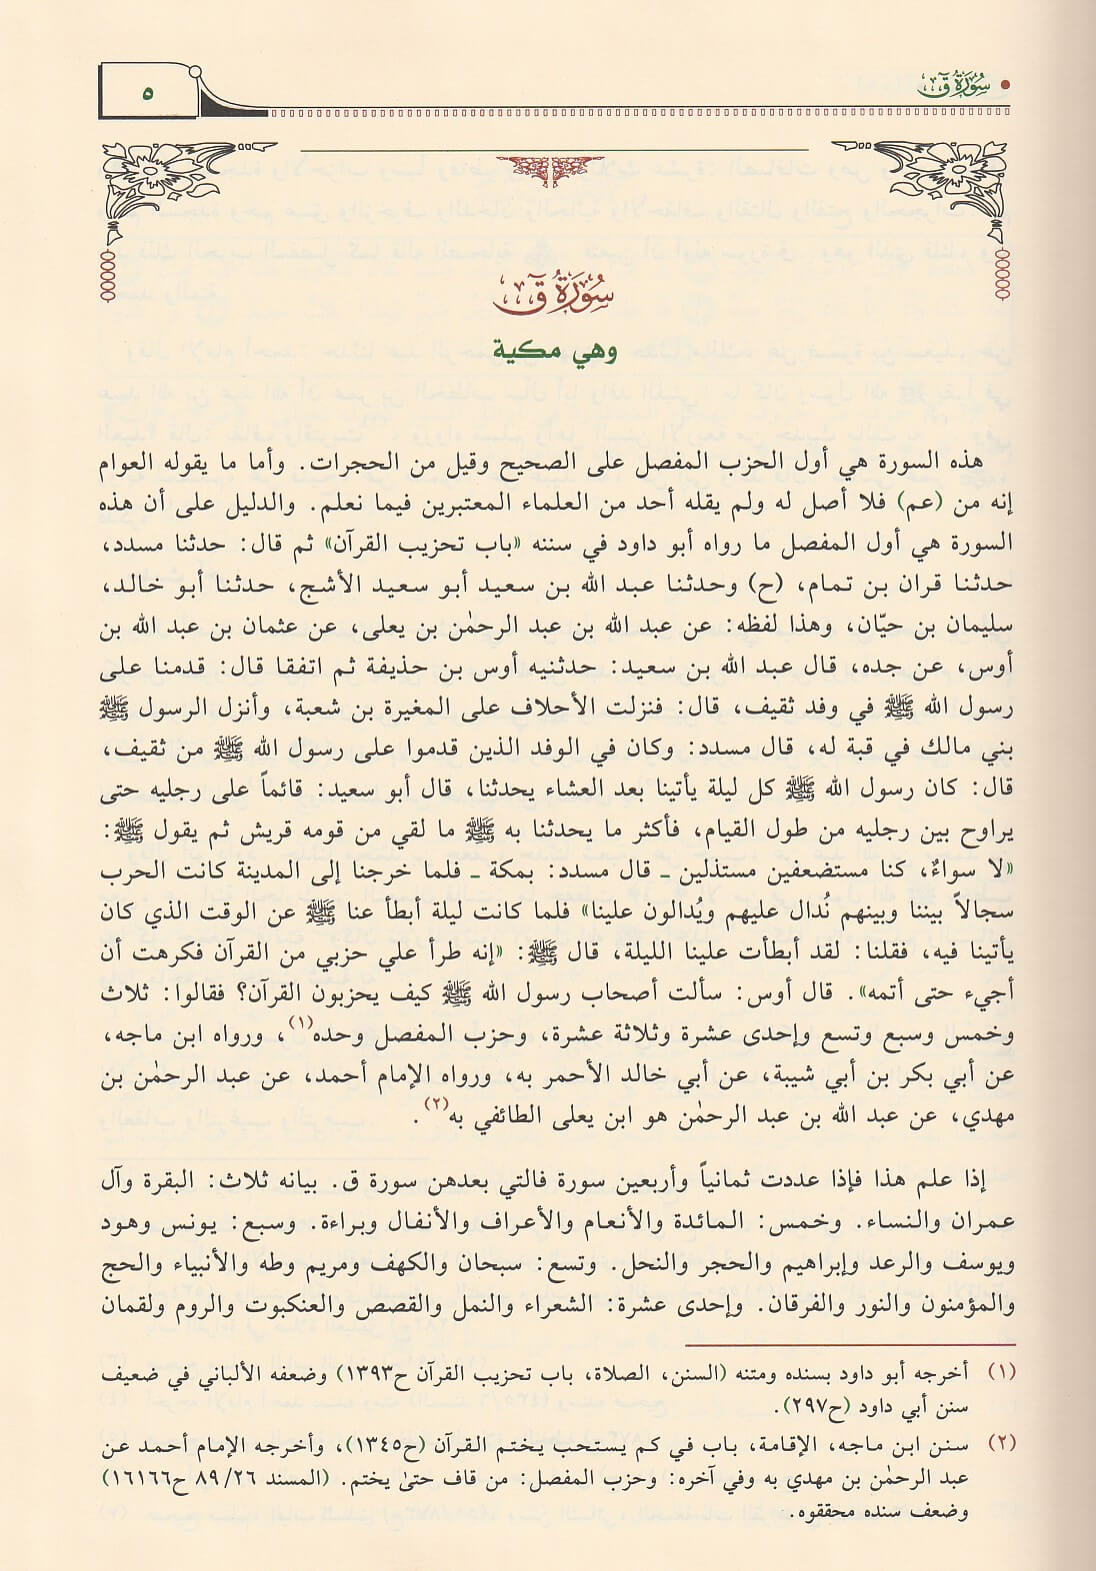 سورة ق
٥
سورة ق
وهي مكية
هذه السورة هي أول الحزب المفصل على الصحيح وقيل من الحجرات. وأما ما يقوله العوام
إنه من (عم) فلا أصل له ولم يقله أحد من العلماء المعتبرين فيما نعلم. والدليل على أن هذه
السورة هي أول المفصل ما رواه أبو داود في سننه «باب تحزيب القرآن» ثم قال: حدثنا مسدد،
حدثنا قران بن تمام، (ح) وحدثنا عبد الله بن سعيد أبو سعيد الأشج، حدثنا أبو خالد،
سليمان بن حيّان، وهذا لفظه: عن عبد الله بن عبد الرحمٰن بن يعلى، عن عثمان بن عبد الله بن
أوس، عن جده، قال عبد الله بن سعيد: حدثنيه أوس بن حذيفة ثم اتفقا قال: قدمنا على
رسول الله ﷺ في وفد ثقيف، قال: فنزلت الأحلاف على المغيرة بن شعبة، وأنزل الرسول ﷺ
بني مالك في قبة له، قال مسدد: وكان في الوفد الذين قدموا على رسول الله ﷺ من ثقيف،
قال: كان رسول الله ﷺ كل ليلة يأتينا بعد العشاء يحدثنا، قال أبو سعيد: قائماً على رجليه حتى
يراوح بين رجليه من طول القيام، فأكثر ما يحدثنا به ﷺ ما لقي من قومه قريش ثم يقول ﷺ:
«لا سواءٌ، كنا مستضعفين مستذلين ـ قال مسدد: بمكة ـ فلما خرجنا إلى المدينة كانت الحرب
سجالاً بيننا وبينهم نُدال عليهم ويُدالون علينا» فلما كانت ليلة أبطأ عنا ﷺ عن الوقت الذي كان
يأتينا فيه، فقلنا: لقد أبطأت علينا الليلة، قال ﷺ: «إنه طرأ علي حزبي من القرآن فكرهت أن
أجيء حتى أتمه». قال أوس: سألت أصحاب رسول الله ﷺ كيف يحزبون القرآن؟ فقالوا: ثلاث
وخمس وسبع وتسع وإحدى عشرة وثلاثة عشرة، وحزب المفصل وحده(١)، ورواه ابن ماجه،
عن أبي بكر بن أبي شيبة، عن أبي خالد الأحمر به، ورواه الإمام أحمد، عن عبد الرحمٰن بن
مهدي، عن عبد الله بن عبد الرحمٰن هو ابن يعلى الطائفي به(٢).
إذا علم هذا فإذا عددت ثمانياً وأربعين سورة فالتي بعدهن سورة ق. بيانه ثلاث: البقرة وآل
عمران والنساء. وخمس: المائدة والأنعام والأعراف والأنفال وبراءة. وسبع: يونس وهود
ويوسف والرعد وإبراهيم والحجر والنحل. وتسع: سبحان والكهف ومريم وطه والأنبياء والحج
والمؤمنون والنور والفرقان. وإحدى عشرة: الشعراء والنمل والقصص والعنكبوت والروم ولقمان
(١) أخرجه أبو داود بسنده ومتنه (السنن، الصلاة، باب تحزيب القرآن ح١٣٩٣) وضعفه الألباني في ضعيف
سنن أبي داود (ح٢٩٧).
(٢) سنن ابن ماجه، الإقامة، باب في كم يستحب يختم القرآن (ح١٣٤٥)، وأخرجه الإمام أحمد عن
عبد الرحمٰن بن مهدي به وفي آخره: وحزب المفصل: من قاف حتىٰ يختم. (المسند ٨٩/٢٦ ح١٦١٦٦)
وضعف سنده محققوه.